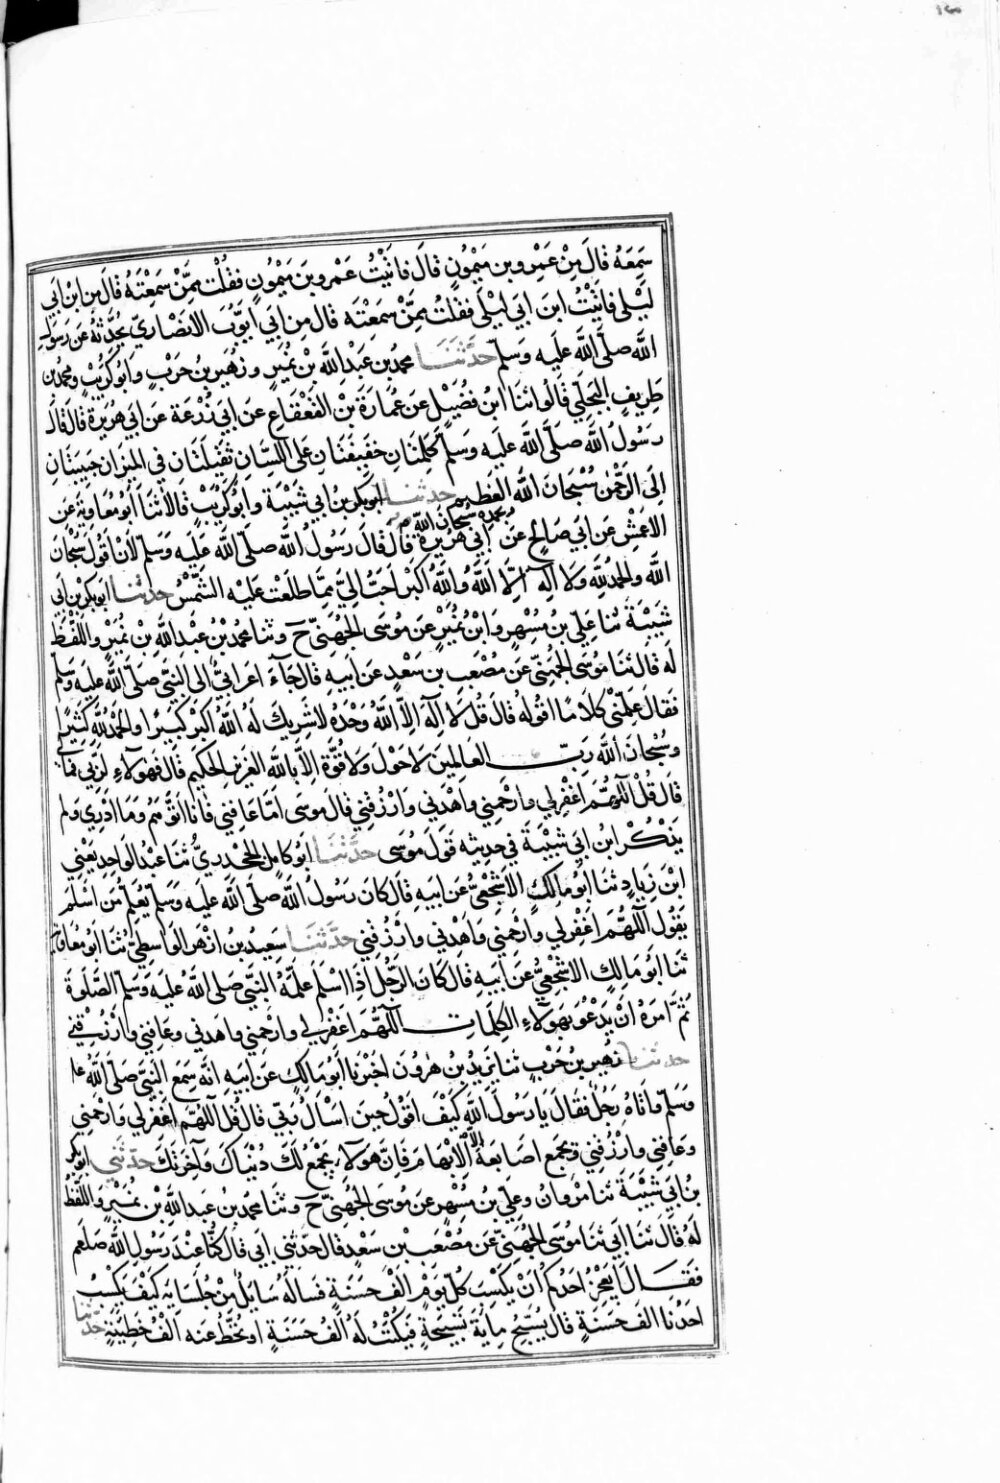 سَمِعَهُ قَالَ مِنْ عَمْرِو بن مَيْمُونٍ قَالَ فَاتَيْتُ عَمْرو بن مَيْمُونٍ فَقُلْتُ مِمَّنْ سَمِعْتَهُ قَالَ مِن ابْن اَبي
لَيْلى فَاتَيْتُ ابنَ ابى لَيْلى فَقلْتُ مِمَّنْ سَمِعْتَه قال مِن ابي ايوّبَ الانصَاريّ يُحَدّثُه عَن رَسُولِ
الله صَلّى اللّه عَليه وَسَلم حَدَّثَنَا محمد بن عَبْدِ الله بْن نُمَيرٍ وَزُهَير بْن حَرْبٍ وَابُو كُرَيْبٍ وَمحمد بن
طَرِيفٍ البَجَلِي قَالُوا ثنَا ابْن فُضَيلٍ عَن عُمارَة بْن القَعْقَاعِ عَن ابي زُرْعَة عَن ابي هُرَيرَة قَالَ قَالَ
رَسُولُ الله صَلّى اللّه عَليه وَسَلم كَلِمتَانِ خَفِيفَتَان عَلى اللسَانِ ثَقِيلَتَان في المِيزَان حَبِيبَتَانِ
الى الرّحمْن سُبْحَانَ اللّه العَظِيم حدثنا ابو بَكر بْن ابي شَيْبَة وَابُو كُرَيْبٍ قَالا ثنَا ابُو مُعَاوِيَة عَن
وبحمده سُبحَان الله
الاعْمَش عَن ابي صَالحٍ عَن ابي هُرَيرَة قَالَ قَالَ رَسُولُ اللّه صَلّى اللّه عَلَيه وَسَلم لأنْ اقُولَ سُبْحَان
اللّه وَالحَمْدُ للّه وَلا اِلهَ اِلّا اللّه وَاللّهُ اكْبَر احَبُّ اِلَيَّ مِمّا طلَعَت عَليه الشّمْسُ حدثنا ابو بكر بْن ابي
شَيْبَةَ ثنا عَلِي بن مُسْهِرٍ وَابْن نُمَيْرٍ عَن مُوسَى الجُهَنيّ ح وثنَا محمد بْن عَبد اللّه بْن نُمَيْرٍ وَاللّفْظ
لَه قَالَ ثنَا مُوسَى الجُهَنيّ عَن مُصْعَب بن سَعْدٍ عَن ابيه قَالَ جَآءَ اعرَابيٌّ الى النبّيّ صَلّى اللّه عَليه وَسَلم
فَقال عَلّمْني كَلاماً اقُولُه قَالَ قُل لا اِله اِلّا اللّهُ وَحْدَهُ لا شَرِيكَ لَه اللّهُ اكبَر كَبيرًا وَالحَمْدُ للّه كَثِيرًا
وَسُبْحَانَ اللّه رَبّ العَالمِين لا حَوْلَ وَلا قُوَّة اِلّا باللّه العَزِيز الحَكِيم قَالَ فَهَؤلاءِ لرَبّي فمَا لي
قَالَ قُل اللّهُمَّ اغْفِر لي وَارْحَمني وَاهْدِني وَارْزُقْني قَالَ مُوسَى امّا عَافِني فَانا اتَوَهّمُ وَمَا ادْرِي وَلم
يَذْكُر ابْن ابي شَيْبَة في حَدِيثه قَول مُوسَى حَدّثنَا ابُو كامِل الجَحْدَريّ ثنا عَبْدُ الوَاحِد يَعْني
ابْن زِيَادٍ ثنَا ابُو مَالكٍ الاشْجَعيّ عَن ابيه قَالَ كَانَ رَسُولُ اللّه صَلّى اللّه عَليه وَسَلم يُعَلّمُ مَن اسْلَم
يَقُولُ اللّهُمّ اغْفِر لي وَارحَمني وَاهْدِني وَارْزُقني حَدّثنَا سَعِيد بن ازْهَر الوَاسِطيّ ثنا ابو معَاوية
ثنا ابُو مَالِكٍ الاشْجَعيّ عَن ابيه قَالَ كَانَ الرّجُل اِذا اسْلَم عَلّمَهُ النبّيّ صَلّى اللّه عَليه وَسَلم الصّلوة
ثمّ امَرَهُ انْ يَدْعُوَ بهَؤلاءِ الكَلمَاتِ اللّهُمّ اغْفِر لي وَارْحَمني وَاهْدِني وعَافِني وَارْزُقْني
حدثنا زُهَير بْن حَرْبٍ ثنَا يَزيد بْن هٰرُونَ اخْبَرنَا ابُو مَالكٍ عَن ابيه انّه سَمِعَ النبّيّ صَلّى اللّه عليه
وَسَلم وَاتَاهُ رَجُل فَقَال يا رَسُولَ اللّه كَيْفَ اقُولُ حِينَ اسْالُ رَبّي قَال قُل اللّهُمّ اغْفِر لي وَارْحَمني
وَعَافِني وَارْزُقني وَيَجمَع اصَابعَهُ الا الابْهَامَ فَانّ هَؤلاءِ تَجْمَعُ لَكَ دُنْيَاكَ وَآخِرَتَكَ حَدّثَني ابو بكر
بْن ابي شَيْبَة ثنا مَرْوَانُ وَعَلِي بن مُسْهِرٍ عَن مُوسَى الجُهَنيّ ح وثَنَا محمد بن عَبد اللّه بْن نُمَيْرٍ وَاللّفْظ
لَهُ قَال ثنَا ابي ثنَا مُوسَى الجُهَنيّ عَن مُصْعَب بْن سَعْدٍ قَال حَدّثني ابي قَال كُنّا عِنْدَ رَسُولِ اللّه صَلعم
فَقَال ايَعْجِزُ احَدكم انْ يَكْسِبَ كلّ يَوْمٍ الْفَ حَسَنةٍ فسَالهُ سَائِل مِنْ جُلَسَائه كَيْفَ يَكْسِبُ
احَدُنا الفَ حَسَنَةٍ قَال يُسَبّحُ مِايَة تَسْبيحَةٍ فيَكْتُبُ لَهُ الْفُ حَسَنَةٍ او يُحَطّ عَنه الْف خَطِيئَةٍ حدّثنا